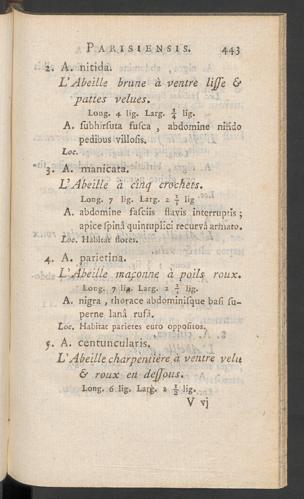 PARISIENSIS. 443
2. A. nitida.
L'Abeille brune à ventre lisse &
pattes velues.
Long. 4 lig. Larg. 3/4 lig.
A. subhirsuta fusca, abdomine nitido
pedibus villosis.
Loc.
3. A. manicata.
L'Abeille à cinq crochets.
Long. 7 lig. Larg. 2 1/2 lig
A. abdomine fasciis flavis interruptis;
apice spinâ quintuplici recurvâ armato.
Loc. Habitat flores.
4. A. parietina.
L'Abeille maçonne à poils roux.
Long. 7 lig. Larg. 2 1/2 lig.
A. nigra, thorace abdominisque basi su-
perne lanâ rufâ.
Loc. Habitat parietes euro oppositos.
5. A. centuncularis.
L'Abeille charpentière à ventre velu
& roux en dessous.
Long. 6 lig. Larg. 2 1/2 lig.
V vj